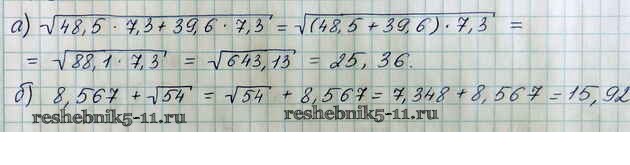 а) √48,5 · 7,3 + 39,6 · 7,3 = √(48,5 + 39,6) · 7,3 =
= √88,1 · 7,3 = √643,13 = 25,36.
б) 8,567 + √54 = √54 + 8,567 = 7,348 + 8,567 = 15,92
reshebnik5-11.ru reshebnik5-11.ru